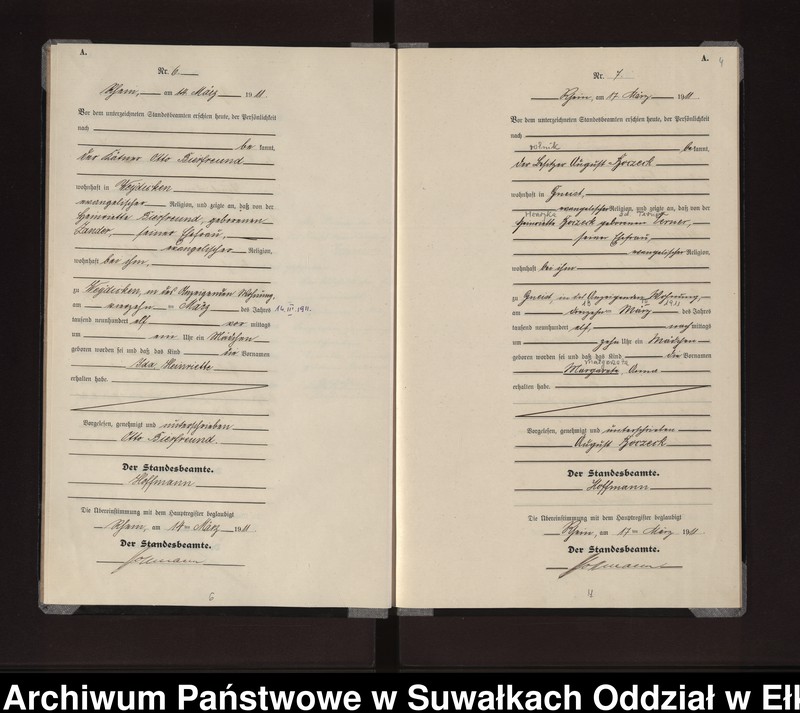 A.
Nr. 6.
Rhein, am 14 März 1911.
Vor dem unterzeichneten Standesbeamten erschien heute, der Persönlichkeit
nach
be kannt,
der Kätner Otto Bierfreund
wohnhaft in Weydicken
evangelischer Religion, und zeigte an, daß von der
Henriette Bierfreund, geborenen
Zander, seiner Ehefrau,
evangelischer Religion,
wohnhaft bei ihm,
zu Weydicken, in des Anzeigenden Wohnung,
am vierzehn ten März des Jahres 14.III.1911.
tausend neunhundert elf vor mittags
um ein Uhr ein Mädchen
geboren worden sei und daß das Kind die Vornamen
Ida Henriette
erhalten habe.
Vorgelesen, genehmigt und unterschrieben
Otto Bierfreund.
Der Standesbeamte.
Hoffmann
Die Übereinstimmung mit dem Hauptregister beglaubigt
Rhein, am 14ten März 1911.
Der Standesbeamte.
Hoffmann
6
A. 4
Nr. 7.
Rhein, am 17 März 1911.
Vor dem unterzeichneten Standesbeamten erschien heute, der Persönlichkeit
nach
rolnik be kannt,
der Besitzer August Borzeck
wohnhaft in Gneist,
evangelischer Religion, und zeigte an, daß von der
Henriette Borzeck geborenen
seiner Ehefrau,
evangelischer Religion,
wohnhaft bei ihm
zu Gneist, in des Anzeigenden Wohnung,
13 III 1911
am dreizehn ten März des Jahres
tausend neunhundert elf, nach mittags
um zehn Uhr ein Mädchen
geboren worden sei und daß das Kind die Vornamen
Małgorzata
Margarete, Anna
erhalten habe.
Vorgelesen, genehmigt und unterschrieben
August Borzeck
Der Standesbeamte.
Hoffmann
Die Übereinstimmung mit dem Hauptregister beglaubigt
Rhein, am 17ten März 1911.
Der Standesbeamte.
Hoffmann
Archiwum Państwowe w Suwałkach Oddział w Ełk